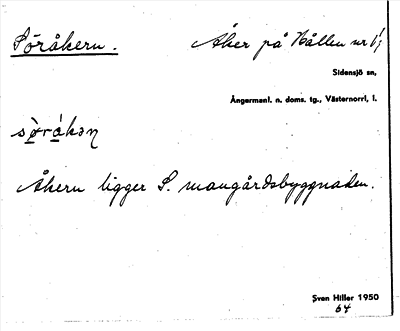 Söråkern. Åker på Hållen nr 1;
Sidensjö sn,
Ångermanl. n. doms. tg., Västernorrl, l.
sø̀rákən
Åkern ligger S. mangårdsbyggnaden.
Sven Hiller 1950
64